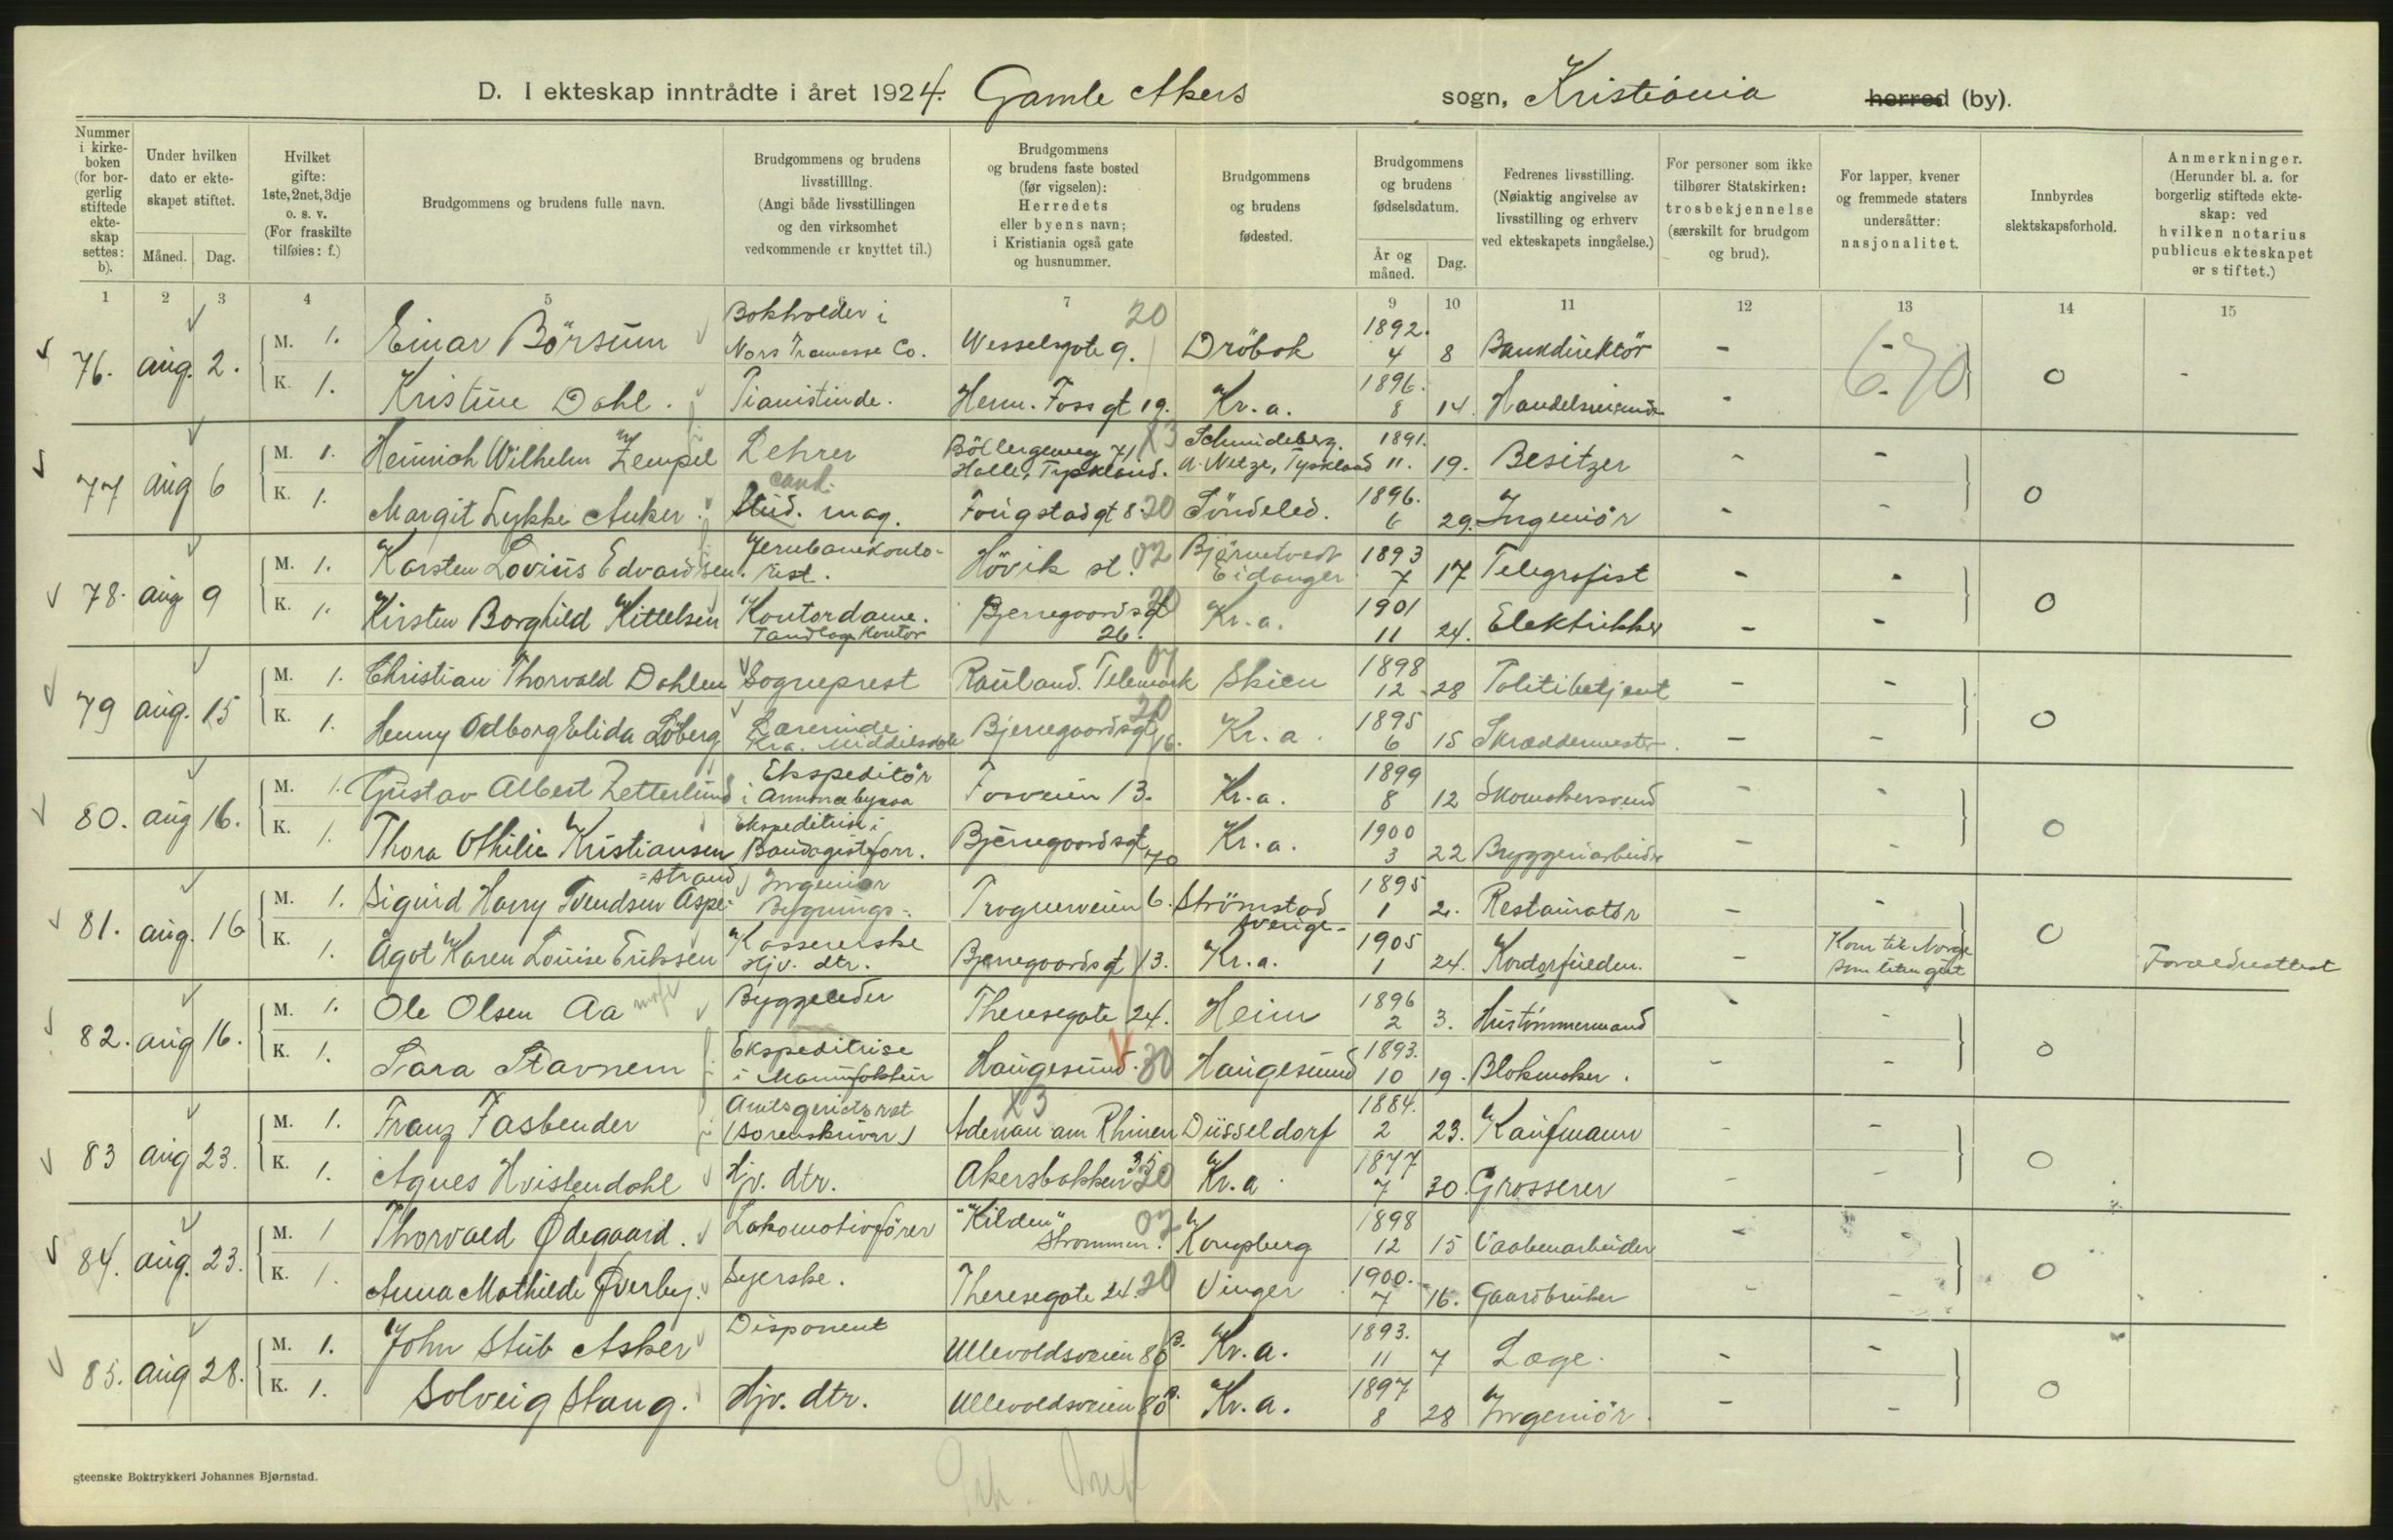 D. I ekteskap inntrådte i året 1924. Gamle Akers sogn, Kristiania herred (by).
Nummer i kirkeboken (for borgerlig stiftede ekteskap settes: b).
Under hvilken dato er ekteskapet stiftet.
Måned. Dag.
Hvilket gifte: 1ste, 2net, 3dje o. s. v. (For fraskilte tilføies: f.)
Brudgommens og brudens fulle navn.
Brudgommens og brudens livsstilllng. (Angi både livsstillingen og den virksomhet vedkommende er knyttet til.)
Brudgommens og brudens faste bosted (før vigselen): Herredets eller byens navn; i Kristiania også gate og husnummer.
Brudgommens og brudens fødested.
Brudgommens og brudens fødselsdatum.
År og måned. Dag.
Fedrenes livsstilling. (Nøiaktig angivelse av livsstilling og erhverv ved ekteskapets inngåelse.)
For personer som ikke tilhører Statskirken: trosbekjennelse (særskilt for brudgom og brud).
For lapper, kvener og fremmede staters undersåtter: nasjonalitet.
Innbyrdes slektskapsforhold.
Anmerkninger. (Herunder bl. a. for borgerlig stiftede ekteskap: ved hvilken notarius publicus ekteskapet er stiftet.)
1 2 3 4 5 6 7 9 10 11 12 13 14 15
76. aug. 2. M. 1. Einar Börsum Bokholder i Nors Co. Wesselsgate 9. 20 Dröbak 1892. 4 8 Bankdirektör - - 0 -
K. 1. Kristine Dahl. Pianistinde. Herm. Foss gt 19. Kr.a. 1896. 8 14. - - 6.70
77 aug 6 M. 1. Heinrich Wilhelm Zempel Lehrer Böllbergerweg 71 Halle, Tyskland. X3 Schneideberg. a. Netze, Tyskland 1891. 11. 19. Besitzer - - 0
K. 1. Margit Lykke Anker. Stud. cand. mag. Fougstadgt 8. 20 Söndeled. 1896. 6 29. Ingeniör - -
78. aug 9 M. 1. Karsten Lovius Edvardsen. Jernbanekonto- rist. Hövik st. 02 Bjørntvedt Eidanger 1893 7 17 Telegrafist - - 0
K. 1. Kirsten Borghild Kittelsen Kontordame. Tandlægekontor Bjerregaardsgt 26. 20 Kr.a. 1901 11 24. Elektrikker - -
79 aug. 15 M. 1. Christian Thorvald Dahlen Sogneprest Rauland. Telemark 07 Skien 1898 12 28 Politibetjent - - 0
K. 1. Henny Odborg Elida Löberg Lærerinde. Kra. Middelskole Bjerregaardsgt 16. 20 Kr.a. 1895 6 15 Skræddermester. - -
80. aug 16. M. 1. Gustav Albert Zetterlund Ekspeditör i Annoncebyraa Fosveien 13. Kr.a. 1899 8 12 Skomakersvend - - 0
K. 1. Thora Othilie Kristiansen Ekspeditrise i Bandagistforr. Bjerregaardsgt 70 Kr.a. 1900 3 22 Bryggeriarbeider - -
81. aug. 16 M. 1. Sigurd Harry Svendsen Aspe= =strand Ingeniør Bygnings-: Trognerveien 6. Strömstad Sverige- 1895 1 2. Restauratör - - 0
K. 1. Ågot Karen Louise Eriksen Kassererske Hjv. dtr. Bjerregaardsgt 13. Kr.a. 1905 1 24. Kontorfuldm. - Kom til Norge som liten gut Forældreattest
82. aug 16. M. 1. Ole Olsen Aa Byggeleder Theresegate 24. Heim 1896 2 3. Hustömmermand - - 0
K. 1. Sara Stavnem Ekspeditrise i Manufaktur Haugesund. 30 Haugesund 1893. 10 19. Blokmaker. - -
83 aug 23. M. 1. Franz Fasbender Amtsgerichtsrat (Sorenskriver) X3 Adenau am Rhinen Düsseldorf 1884. 2 23. Kaufmann - - 0
K. 1. Agnes Hvistendahl Hjv. dtr. Akersbakken 35 20 Kr.a. 1877 7 30. Grosserer - -
84. aug. 23. M. 1 Thorvald Ødegaard. Lokomotivfører "Kilden" Strømmen. 02 Kongsberg 1898 12 15 Vaabenarbeider - - 0
K. 1. Anna Mathilde Øverby. Syerske. Theresegate 24. 20 Vinger 1900. 7 16. Gaardbruker - -
85. aug 28. M. 1. John Stub Asker Disponent Ullevoldsveien 80 B. Kr.a. 1893. 11 7 Læge. - - 0
K. 1. Solveig Stang. Hjv. dtr. Ullevoldsveien 80 B. Kr.a. 1897 8 28 Ingeniör. - -
gteenske Boktrykkeri Johannes Bjørnstad.